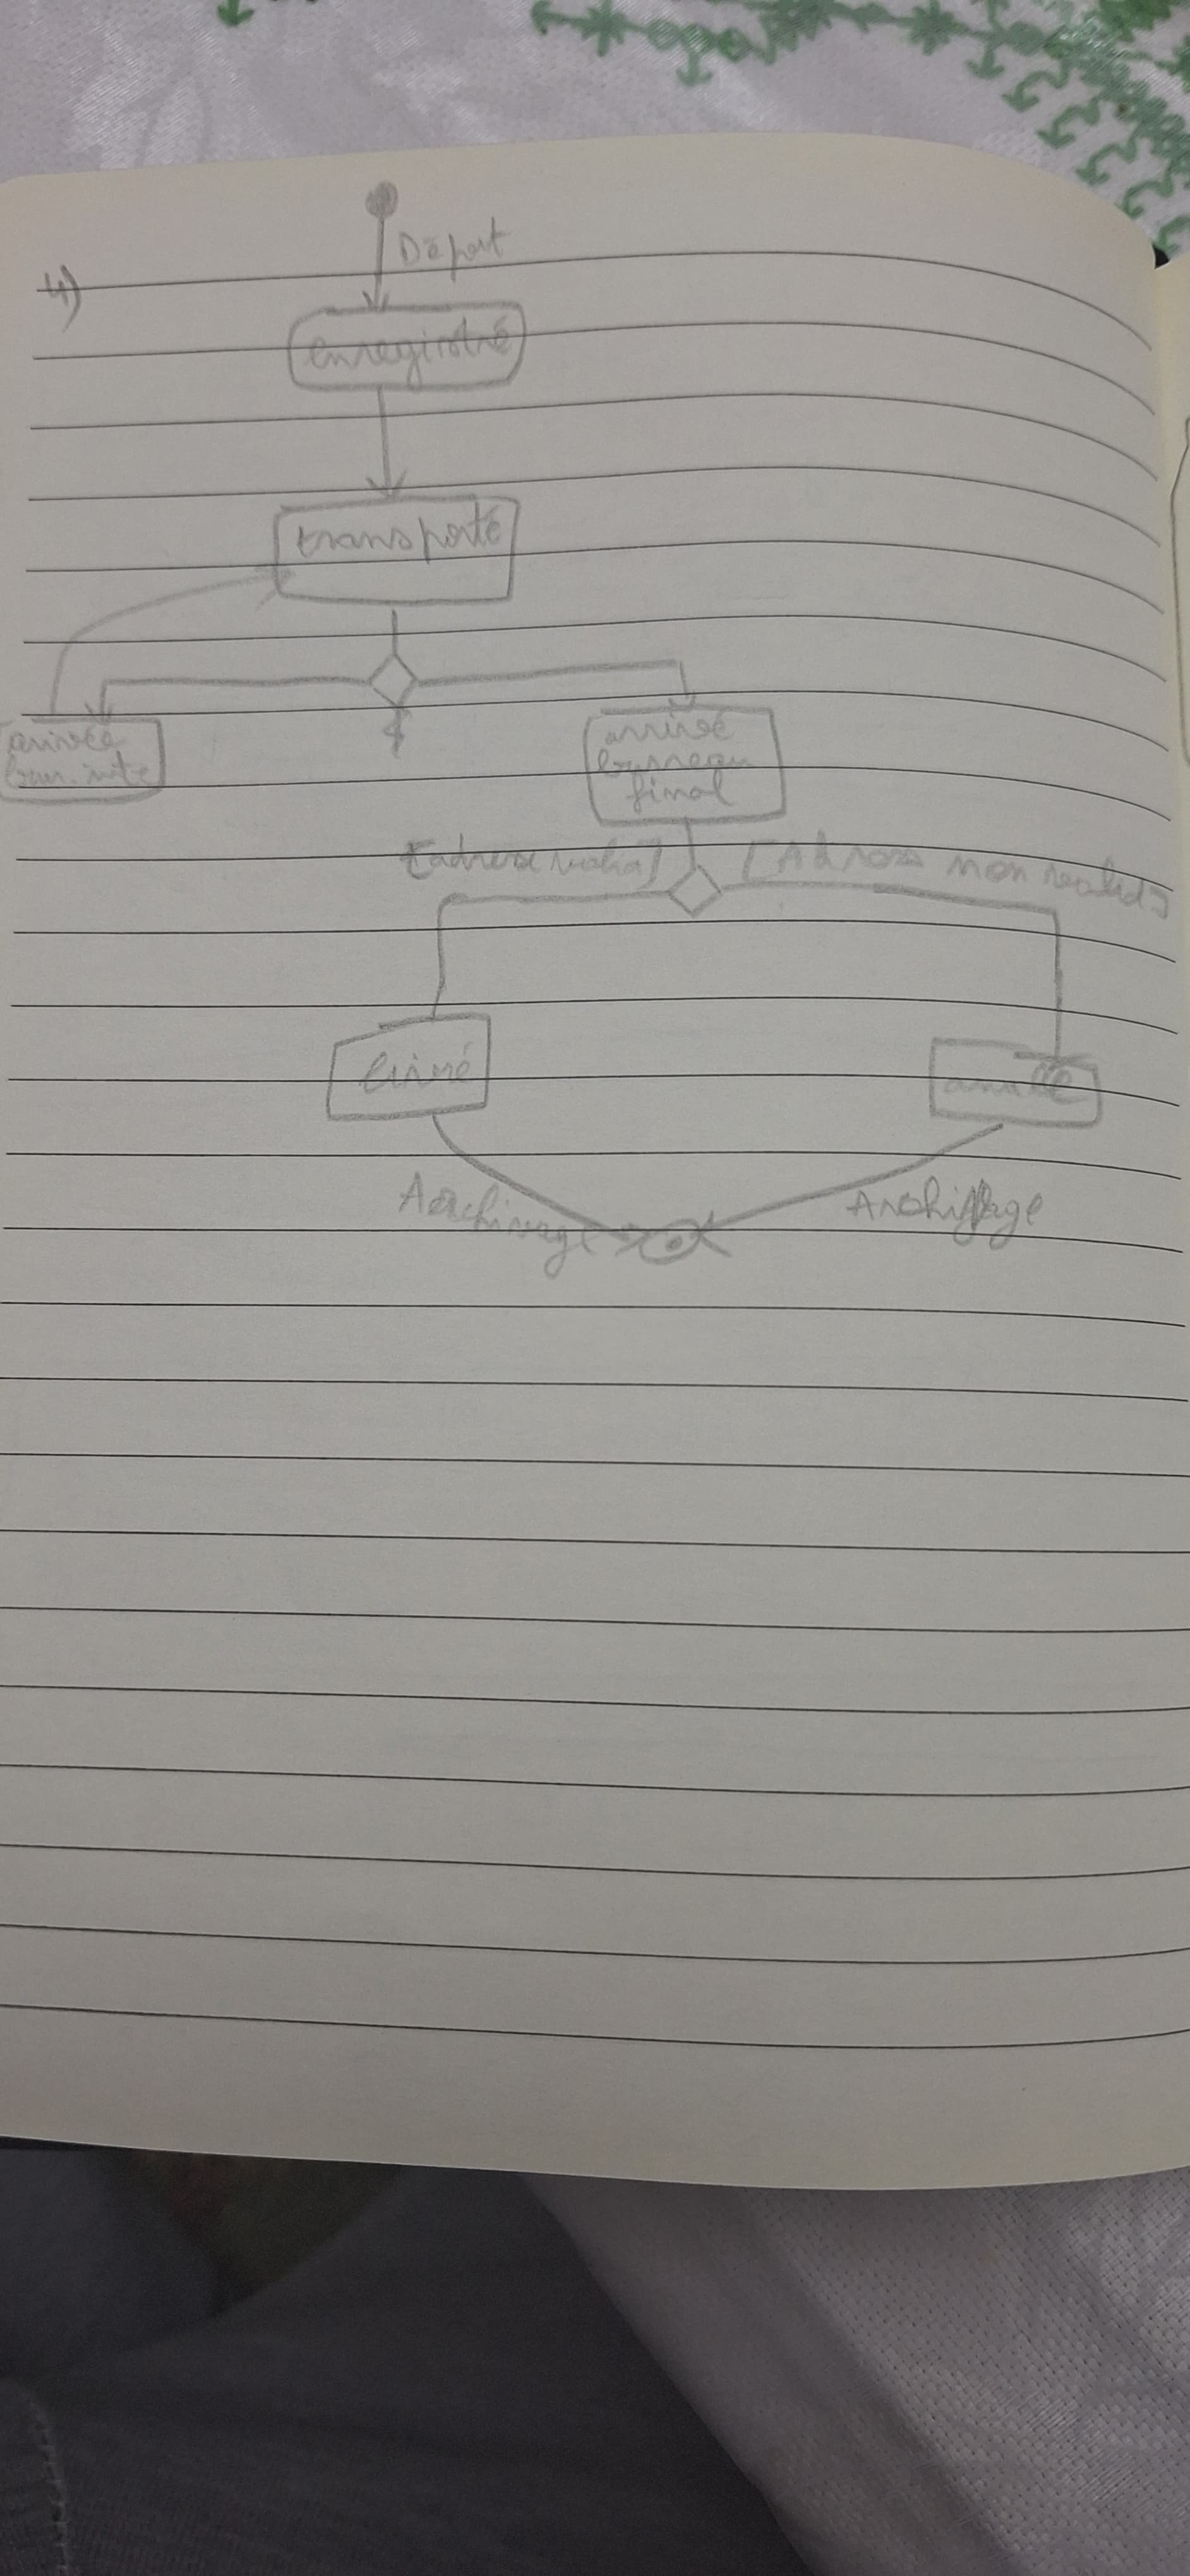 4)
Départ
enregistré
transporté
arrivée
bur. inte
arrivée
burreau
final
[adresse valid] [Adress non valid]
livré
annulé
Archivage
Archivage